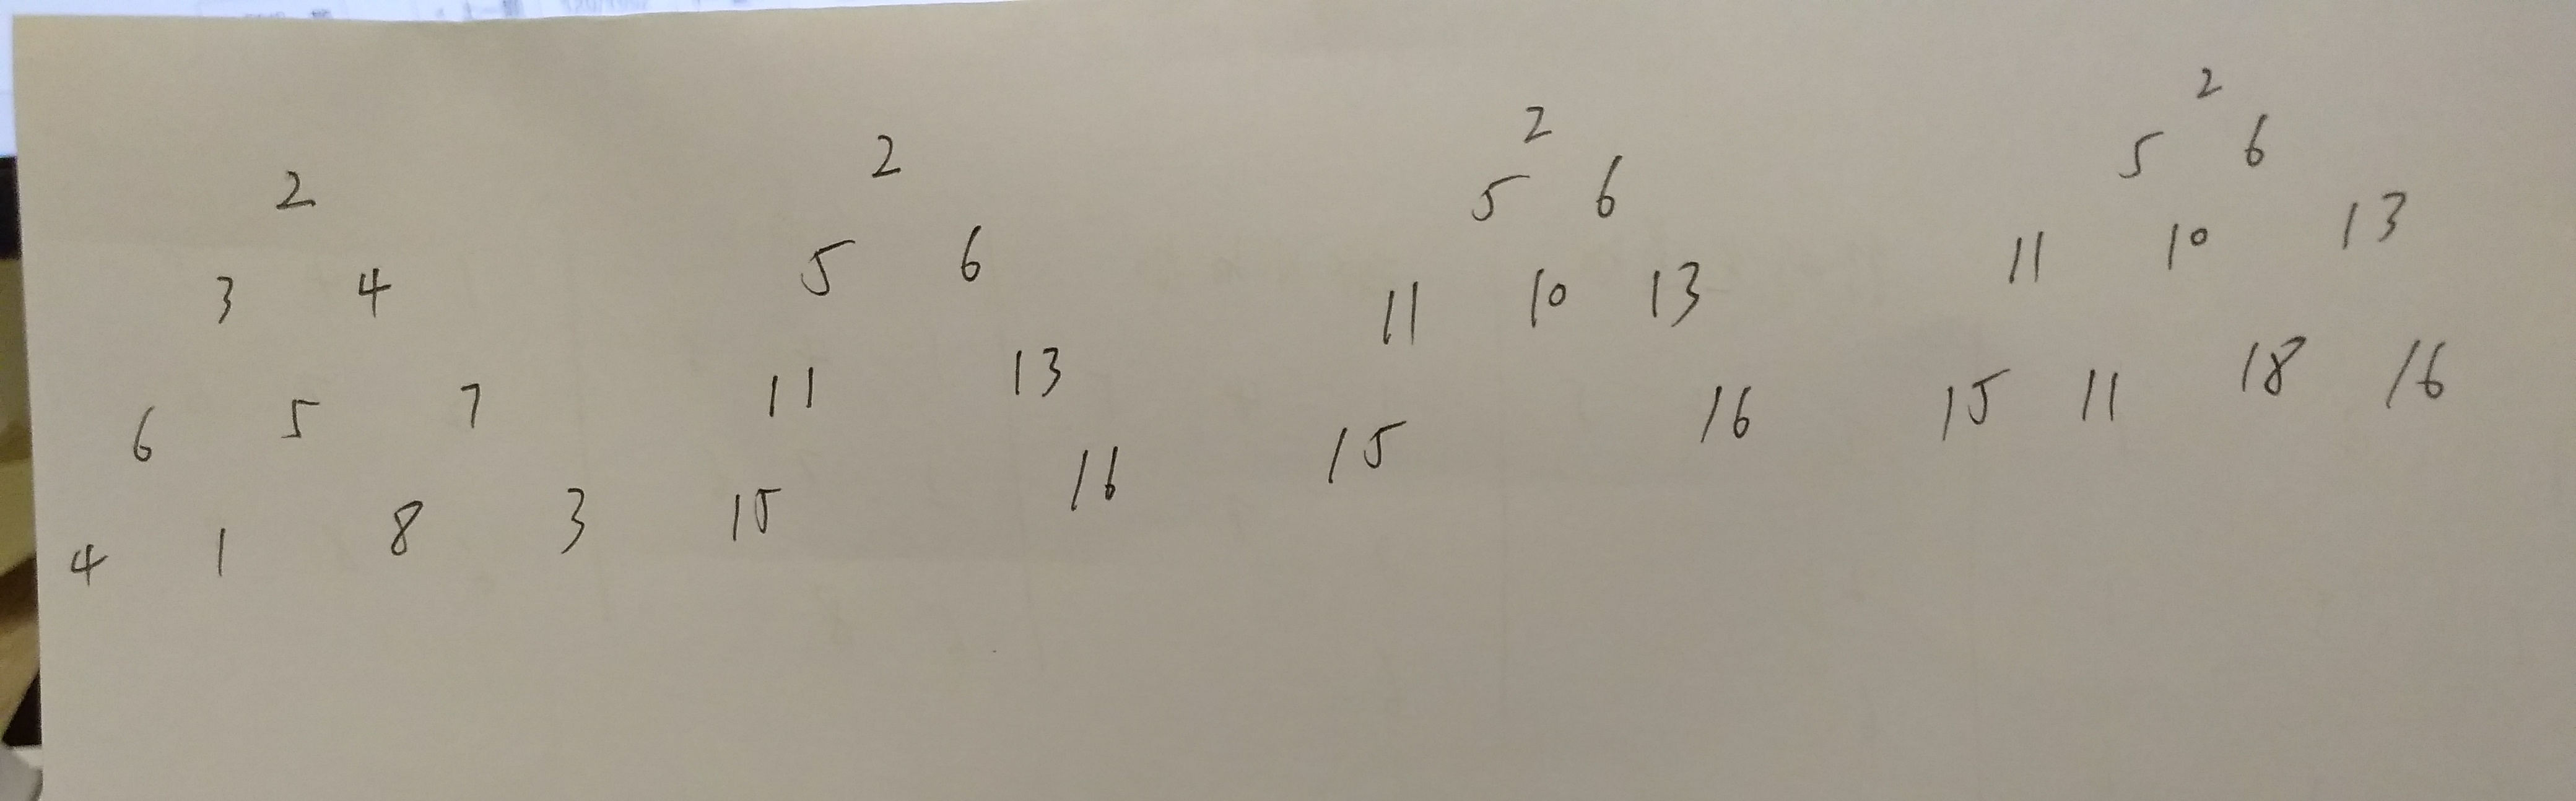 2
3 4
6 5 7
4 1 8 3
2
5 6
11 13
15 16
2
5 6
11 10 13
15 16
2
5 6
11 10 13
15 11 18 16